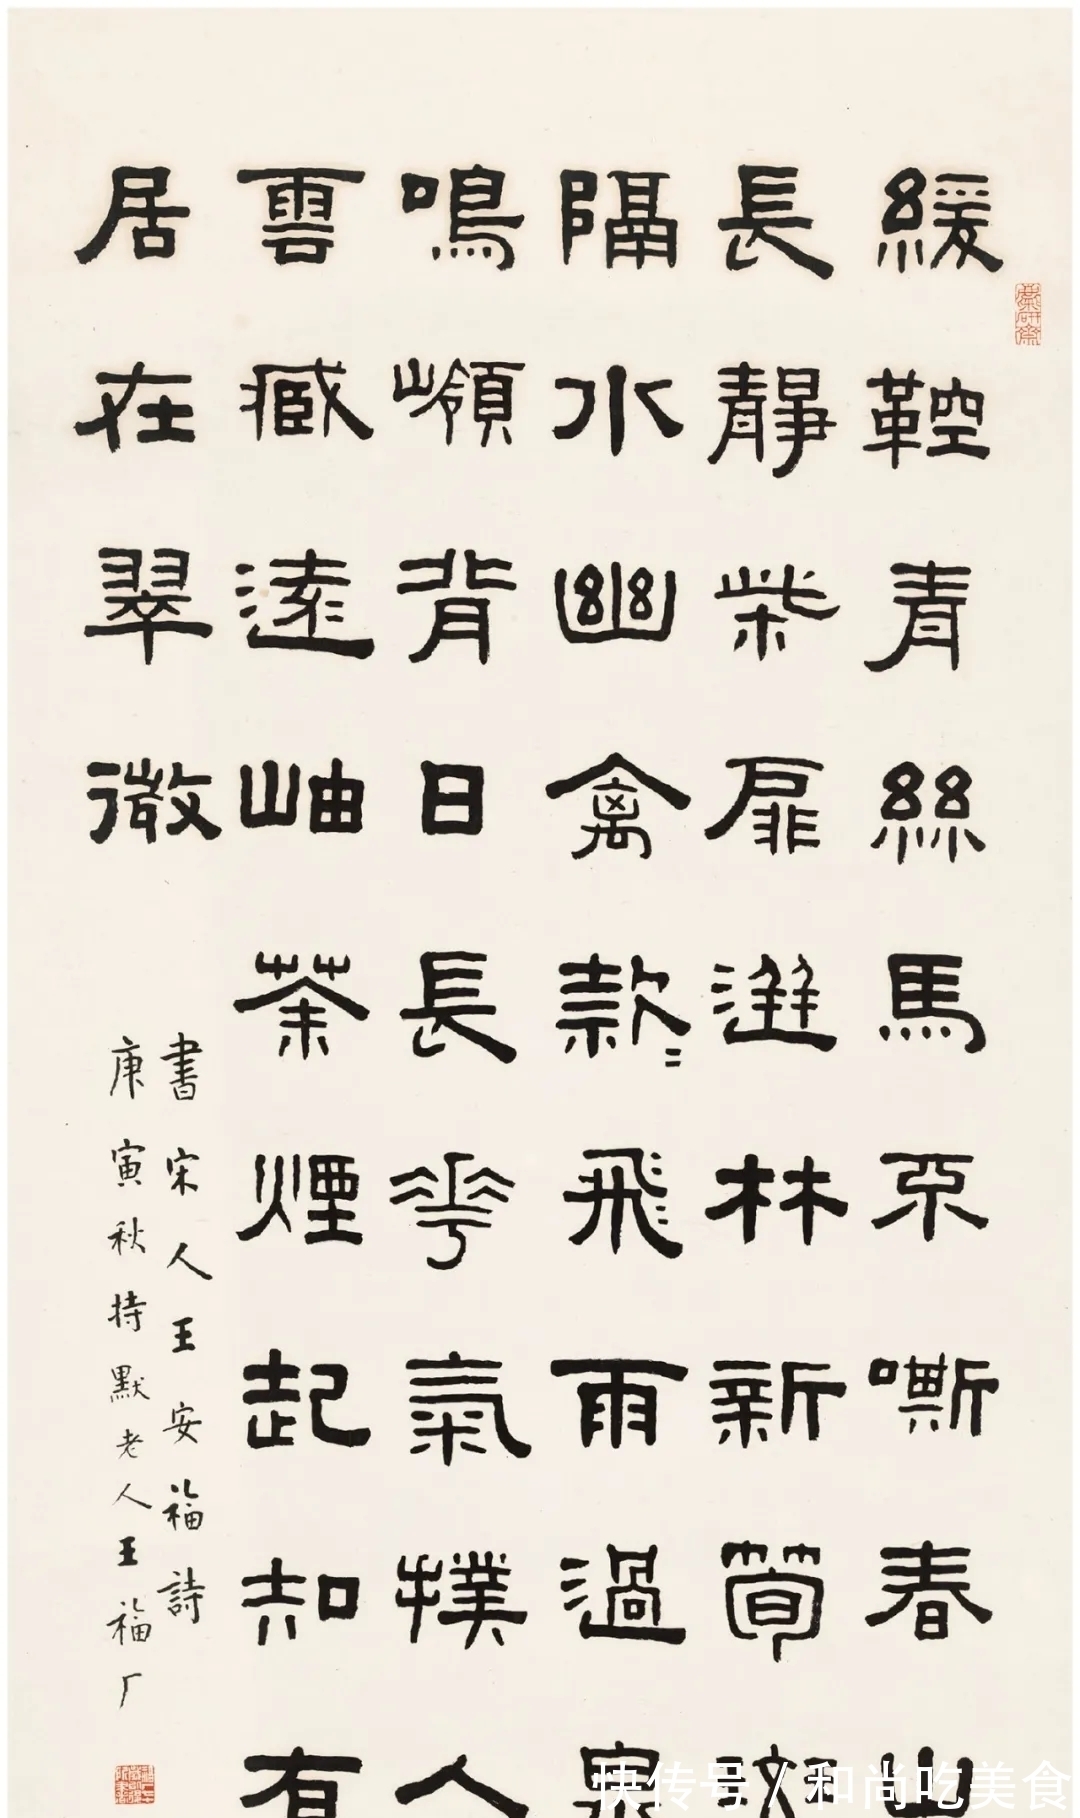 緩鞚青絲馬不嘶春山
長靜柴扉迸林新筍
隔水幽禽款〻飛雨過泉
鳴嶺背日長華氣撲人
雲臧遠岫茶煙起知有
居在翠微
書宋人王安福詩
庚寅秋持默老人王福厂
麋研齋
快传号 / 和尚吃美食